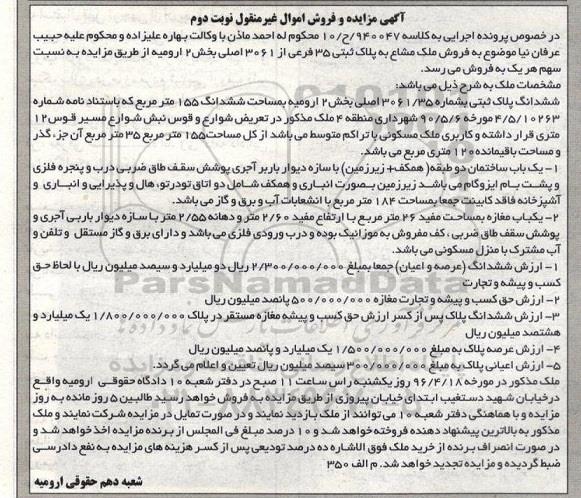 آگهی مزایده و فروش اموال غیرمنقول نوبت دوم
در خصوص پرونده اجرایی به کلاسه ۹۴۰۰۴۷/ج/۱۰ محکوم له احمد ماذن با وکالت بهاره علیزاده و محکوم علیه حبیب
عرفان نیا موضوع به فروش ملک مشاع به پلاک ثبتی ۳۵ فرعی از ۳۰۶۱ اصلی بخش ۲ ارومیه از طریق مزایده به نسبت
سهم هر یک به فروش می رسد.
مشخصات ملک به شرح ذیل می باشد:
ششدانگ پلاک ثبتی بشماره ۳۰۶۱/۳۵ اصلی بخش ۲ ارومیه بمساحت ششدانگ ۱۵۵ متر مربع که باستناد نامه شماره
۴/۵/۱۰۲۶۳ مورخه ۹۰/۵/۶ شهرداری منطقه ۴ ملک مذکور در تعریض شوارع و قوس نبش شوارع مسیر قوس ۱۲
متری قرار داشته و کاربری ملک مسکونی با تراکم متوسط می باشد از کل مساحت ۱۵۵ متر مربع ۳۵ متر مربع آن جز، گذر
و مساحت باقیمانده ۱۲۰ متری مربع می باشد.
۱- یک باب ساختمان دو طبقه( همکف+ زیرزمین) با سازه دیوار باربر آجری پوشش سقف طاق ضربی درب و پنجره فلزی
و پشت بام ایزوگام می باشد زیرزمین بصورت انباری و همکف شامل دو اتاق تودرتو، هال و پذیرایی و انباری و
آشپزخانه فاقد کابینت جمعا بمساحت ۱۸۴ متر مربع با انشعابات آب و برق و گاز می باشد.
۲- یکباب مغازه بمساحت مفید ۲۶ متر مربع با ارتفاع مفید ۲/۶۰ متر و دهانه ۲/۵۵ متر با سازه دیوار باربی آجری و
پوشش سقف طاق ضربی ، کف مفروش به موزائیک بوده و درب ورودی فلزی می باشد و دارای برق و گاز مستقل و تلفن و
آب مشترک با منزل مسکونی می باشد.
۱- ارزش ششدانگ (عرصه و اعیان) جمعا بمبلغ ۲/۳۰۰/۰۰۰/۰۰۰ ریال دو میلیارد و سیصد میلیون ریال با لحاظ حق
کسب و پیشه و تجارت
۲- ارزش حق کسب و پیشه و تجارت مغازه ۵۰۰/۰۰۰/۰۰۰ پانصد میلیون ریال
۳- ارزش ششدانگ پلاک پس از کسر ارزش حق کسب و پیشه مغازه مستقر در پلاک ۱/۸۰۰/۰۰۰/۰۰۰ یک میلیارد و
هشتصد میلیون ریال
۴- ارزش عرصه پلاک به مبلغ ۱/۵۰۰/۰۰۰/۰۰۰ یک میلیارد و پانصد میلیون ریال
۵- ارزش اعیانی پلاک به مبلغ ۳۰۰/۰۰۰/۰۰۰ سیصد میلیون ریال تعیین و اعلام می گردد.
ملک مذکور در مورخه ۹۶/۴/۱۸ روز یکشنبه راس ساعت ۱۱ صبح در دفتر شعبه ۱۰ دادگاه حقوقی ارومیه واقع
در خیابان شهید دستغیب ابتدای خیابان پیروزی از طریق مزایده به فروش خواهد رسید طالبین ۵ روز مانده به روز
مزایده و با هماهنگی دفتر شعبه ۱۰ می توانند از ملک بازدید نمایند و در صورت تمایل در مزایده شرکت نمایند و ملک
مذکور به بالاترین پیشنهاد دهنده فروخته خواهد شد و ۱۰ درصد مبلغ فی المجلس از برنده مزایده اخذ خواهد شد و
در صورت انصراف برنده از خرید ملک فوق الاشاره ده درصد تودیعی پس از کسر هزینه های مزایده به نفع دادرسی
ضبط گردیده و مزایده تجدید خواهد شد. م الف ۳۵۰
شعبه دهم حقوقی ارومیه
ParsNamadData